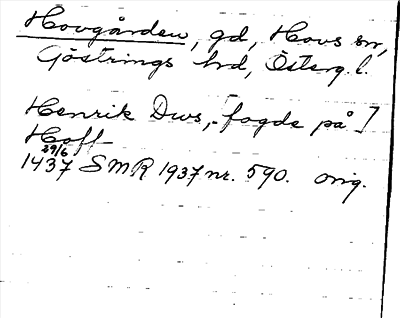 Hovgården, gd, Hovs sn,
Göstrings hd, Österg. l.
Henrik Dws, - fogde på ]
Hoff
29/6
1437 SMR 1937 nr. 590. orig.